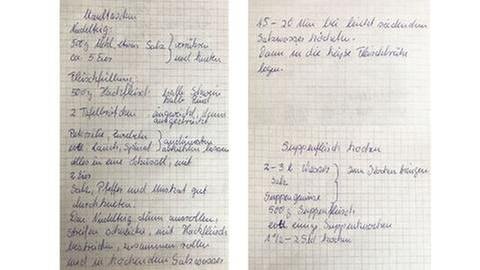 Maultaschen
Nudelteig:
500g Mehl, etwas Salz } verrühren
ca. 5 Eier } und kneten
Fleischfüllung:
500g Hackfleisch halb Schwein
halb Rind
2 Tafelbrötchen eingeweicht, dann
ausgedrückt
Petersilie Zwiebeln } andünsten
evtl. Lauch, Spinat } abkühlen lassen
alles in eine Schüssel, mit
2 Eier
Salz, Pfeffer und Muskat gut
durchkneten.
Den Nudelteig dünn ausrollen,
Streifen schneiden, mit Hackfleisch
bestreichen, zusammen rollen
und in kochendem Salzwasser
15 - 20 Min bei leicht siedendem
Salzwasser köcheln.
Dann in die heiße Fleischbrühe
legen.
Suppenfleisch kochen
2 - 3 l Wasser } zum Kochen bringen
Salz
Suppengemüse
500 g Suppenfleisch
evtl einige Suppenknochen
1 1/2 - 2 Std kochen